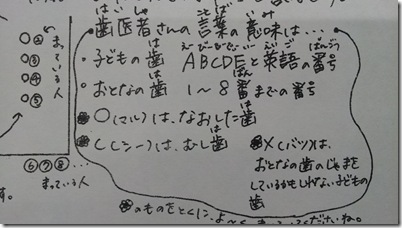 歯医者さんの言葉の意味は…
はいしゃ ことば いみ
・子どもの歯 ABCDEと英語の番号
は えーびーしーでぃーいー えいご ばんごう
・おとなの歯 1〜8番までの番号
は ばん ばんごう
○(マル)は、なおした歯
は
C(シー)は、むし歯
ば
×(バツ)は、
おとなの歯のじゃまを
しているかもしれない子どもの
歯
のものをとくに、よ〜く
てくださいね。
まっている人
②
③
④
⑤
⑥⑦⑧…
まっている人
す。